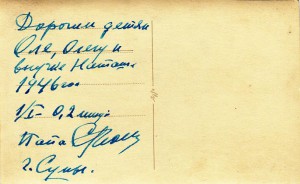 Дорогим детям
Оле, Олегу и
внучке Наташе
1946 год
1/I-
Папа
г. Сумы.